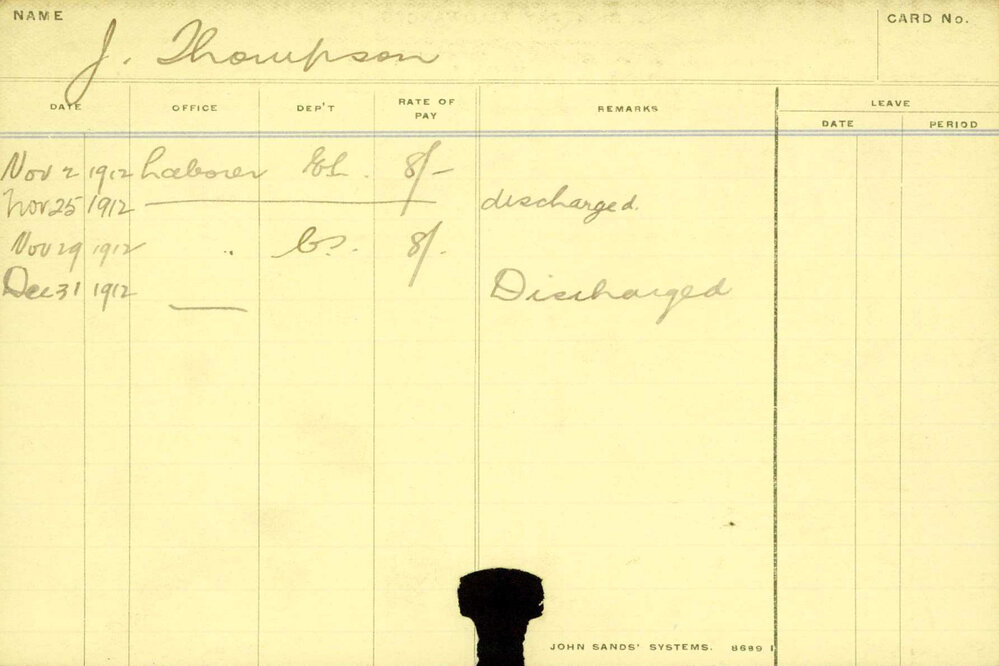 NAME
J. Thompson
CARD No.
DATE OFFICE DEP'T RATE OF PAY REMARKS LEAVE
DATE PERIOD
Nov 2 1912 Laborer 8/-
Nov 25 1912 discharged.
Nov 29 1912 " 8/-
Dec 31 1912 Discharged
JOHN SANDS' SYSTEMS. 8689